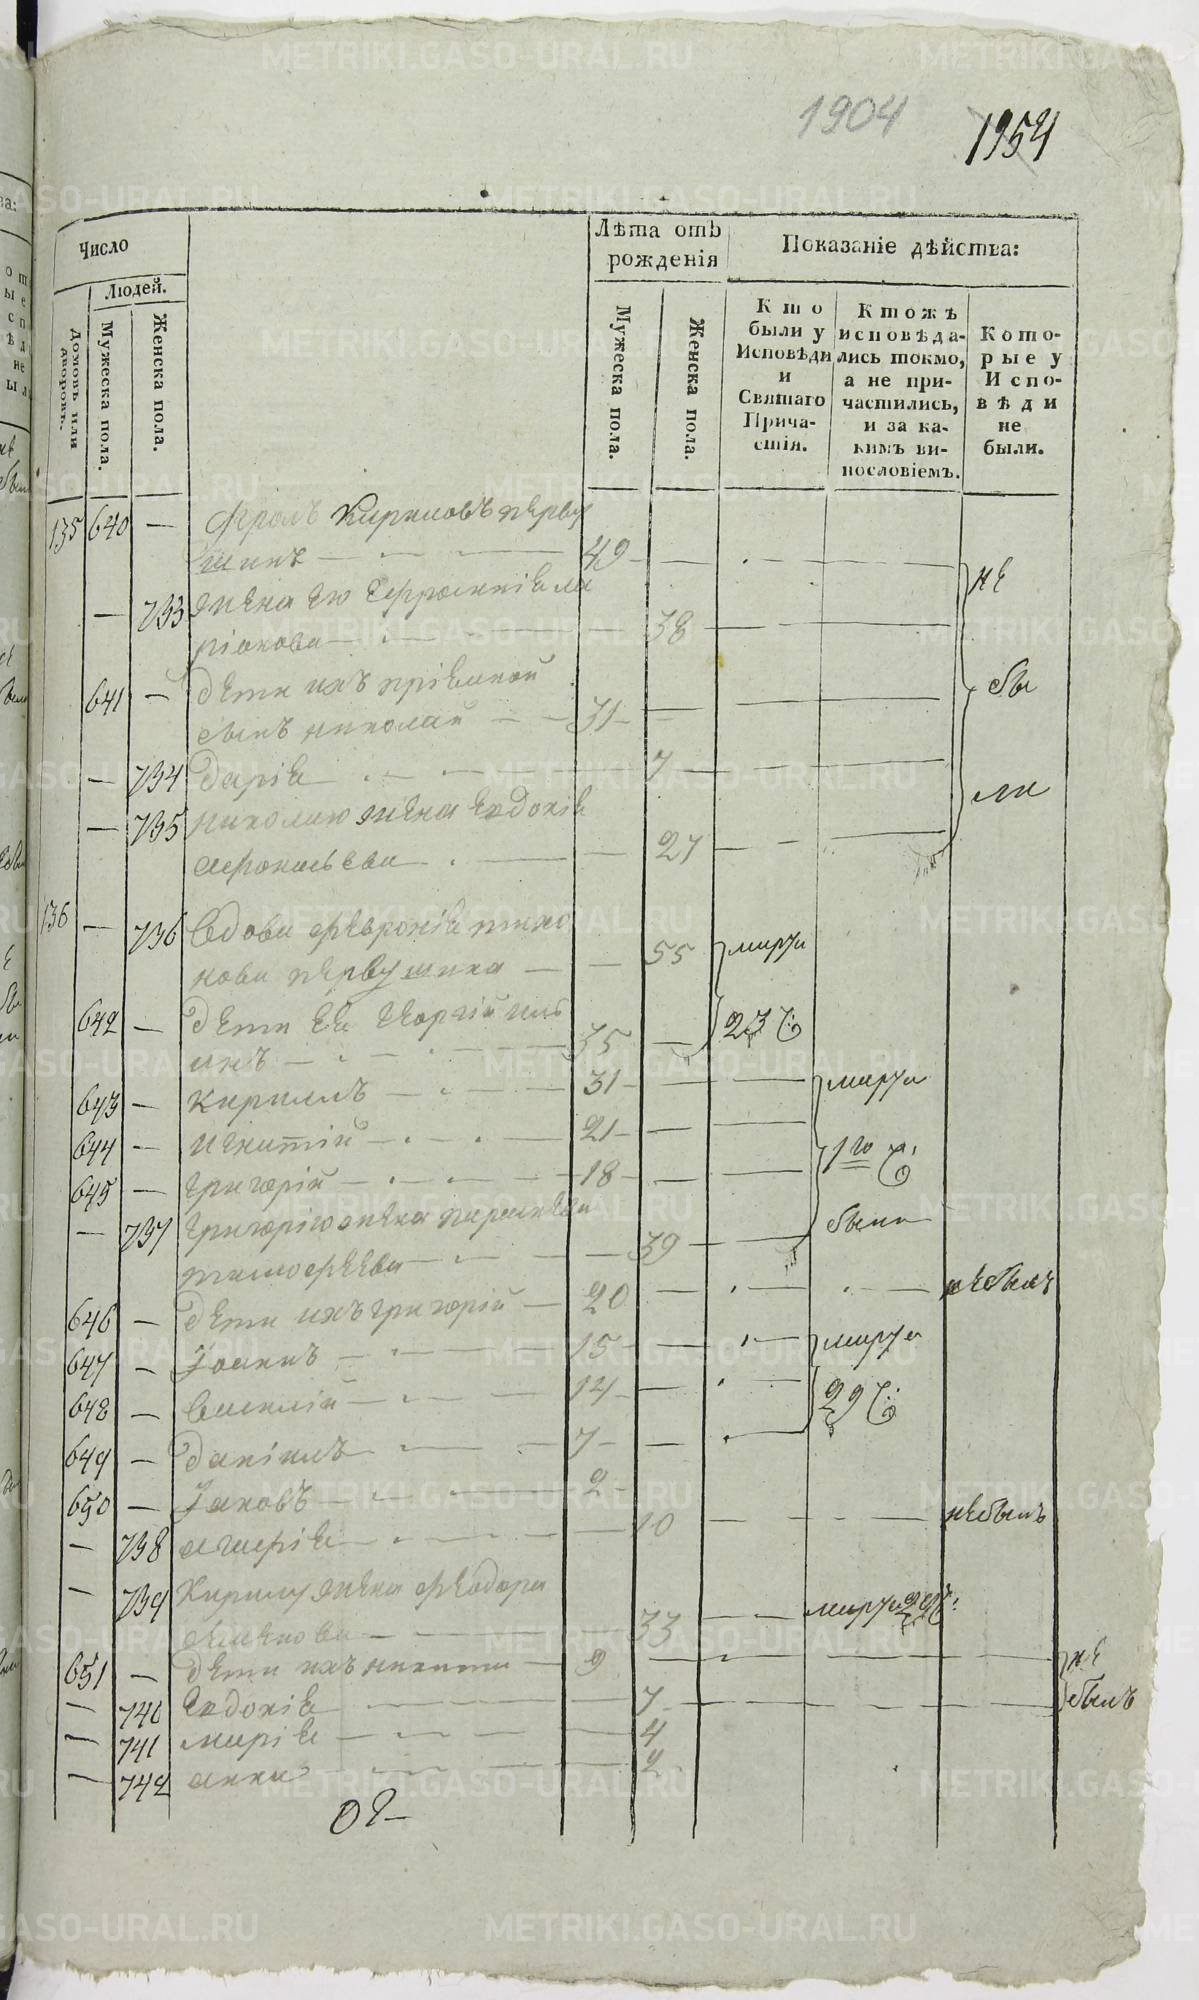 1904
1954
Число
Людей.
Домовъ или дворовъ.
Мужеска пола.
Женска пола.
Лѣта отъ рожденія
Мужеска пола.
Женска пола.
Показаніе дѣйства:
Кто были у Исповѣди и Святаго Причастія.
Ктожъ исповѣдались токмо, а не причастились, и за какимъ винословіемъ.
Которые у Исповѣди не были.
135 640 — Фролъ Кириловъ перву
шинъ — 49 —
— 733 жена его Ефросинія ла
ріонова — 38 —
641 — дети ихъ пріемной
сынъ николай — 31 —
— 734 дарія — 7 —
— 735 николаю жена евдокія
афонасьева — 27 —
не
бы
ли
136 — 736 вдова февронія тихо
нова первушина — 55 марта
642 — дети ея георгій
— 35 — 23 ч:
643 — кирилъ — 31 — марта
644 — игнатій — 21 —
645 — григорій — 18 — 1го ч:
— 737 григорію жена параскева
тимофеева — 39 — были
646 — дети ихъ григорій — 20 — небылъ
647 — Іоаннъ — 15 — марта
648 — василій — 12 — 29 ч:
649 — даніилъ — 7 —
650 — Іаковъ — 2 —
— 738 — 10 — небылъ
— 739 кирилу жена феодора
семенова — 33 — марта 29 ч:
651 — дети ихъ никита — 9 — не
— 740 евдокія — 7 — былъ
— 741 марія — 4
— 742 анна — 2